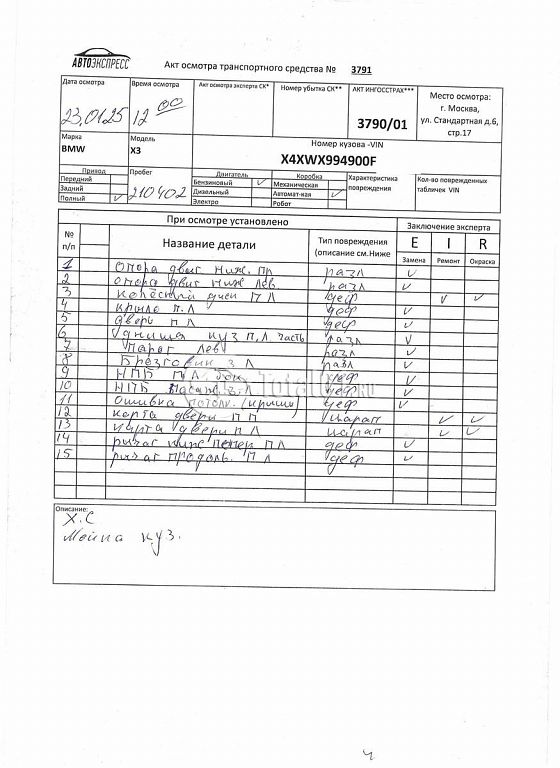 АВТОЭКСПРЕСС
Акт осмотра транспортного средства № 3791
Дата осмотра Время осмотра Акт осмотра эксперта СК* Номер убытка СК** АКТ ИНГОССТРАХ*** Место осмотра:
г. Москва,
ул. Стандартная д.6,
стр.17
23.01.25 12 00 3790/01
Марка Модель Номер кузова -VIN
BMW X3 X4XWX994900F
Привод Пробег Двигатель Коробка Характеристика повреждения Кол-во поврежденных табличек VIN
Передний Бензиновый ✓ Механическая
Задний 210402 Дизельный Автомат-кая ✓
Полный ✓ Электро Робот
При осмотре установлено Заключение эксперта
№ п/п Название детали Тип повреждения (описание см.Ниже E I R
Замена Ремонт Окраска
1 Опора двиг ниж. пр разл ✓
2 опора двиг ниж лев. разл ✓
3 колёсный диск П Л деф ✓ ✓
4 крыло п.л деф ✓
5 дверь п л деф ✓
6 днища куз п,л часть разл ✓
7 Порог лев разл ✓
8 Брезговик з л разл ✓
9 НПБ П Л. деф ✓
10 НПБ з Л деф ✓
11 Ошибка потолк. (крыша) деф ✓
12 карта двери П П царап ✓ ✓
13 карта двери П Л царап ✓ ✓
14 рычаг ниж попер П Л деф ✓
15 рычаг продоль. П Л деф ✓
TotalCar.RU
Описание:
Х.С
Мойка куз.